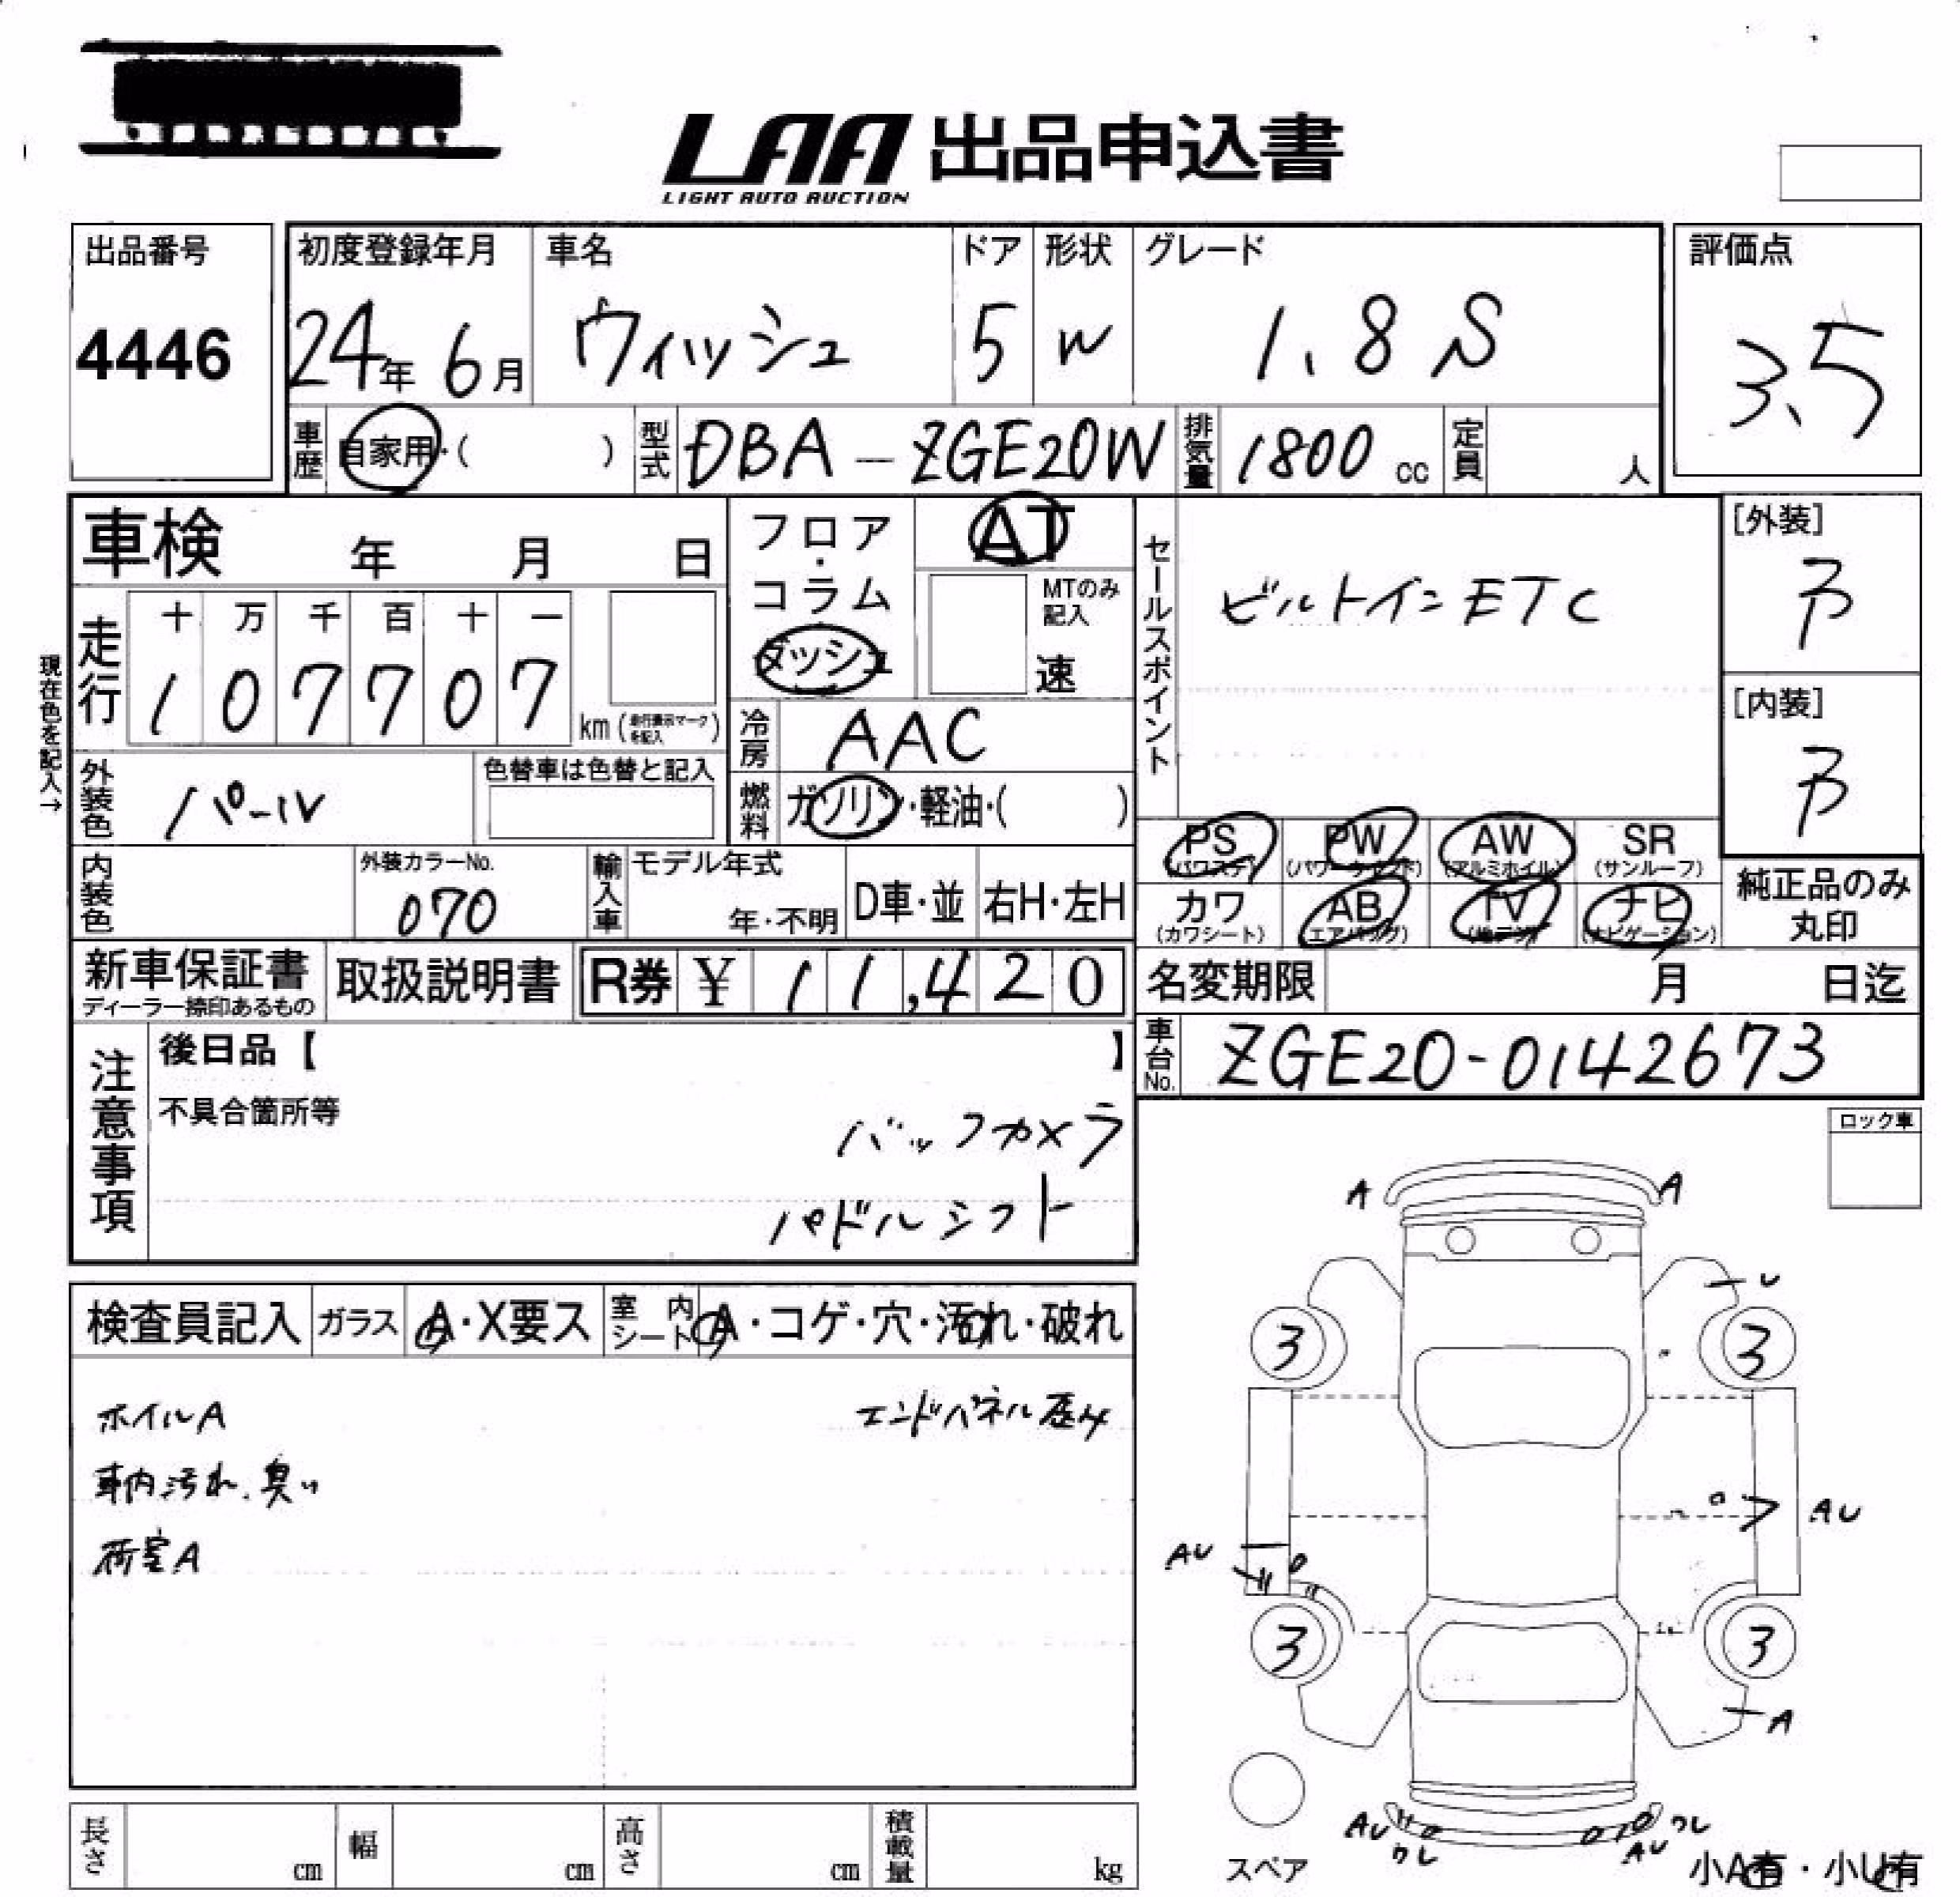 LAA 出品申込書
LIGHT AUTO AUCTION
出品番号
4446
初度登録年月
24年 6月
車名
ウィッシュ
ドア
5
形状
W
グレード
1.8 S
評価点
3.5
車歴 自家用・( )
型式 DBA-ZGE20W
排気量 1800 cc
定員 人
車検 年 月 日
フロア・コラム
ダッシュ
AT
MTのみ記入
速
セールスポイント
ビルトインETC
[外装]
[内装]
現在色を記入→
走行
十 万 千 百 十 一
1 0 7 7 0 7
km (走行表示マークを記入)
冷房 AAC
燃料 ガソリン・軽油・( )
外装色 パール
色替車は色替と記入
PS (パワステ)
PW (パワーウインド)
AW (アルミホイル)
SR (サンルーフ)
カワ (カワシート)
AB (エアバッグ)
TV (地デジ)
ナビ (ナビゲーション)
純正品のみ丸印
内装色
外装カラーNo.
070
輸入車
モデル年式
年・不明
D車・並
右H・左H
新車保証書
ディーラー捺印あるもの
取扱説明書
R券 ¥ 11,420
名変期限 月 日迄
車台No. ZGE20-0142673
注意事項
後日品【 】
不具合箇所等
バックカメラ
パドルシフト
ロック車
検査員記入
ガラス A・X要ス
室内シート A・コゲ・穴・汚れ・破れ
ホイルA
エンドパネル歪み
車内汚れ、臭い
荷室A
A
A
U
3
3
AU
AU
3
3
A
AU
ワレ
ワレ
AU
スペア
小A有・小U有
長さ cm
幅 cm
高さ cm
積載量 kg